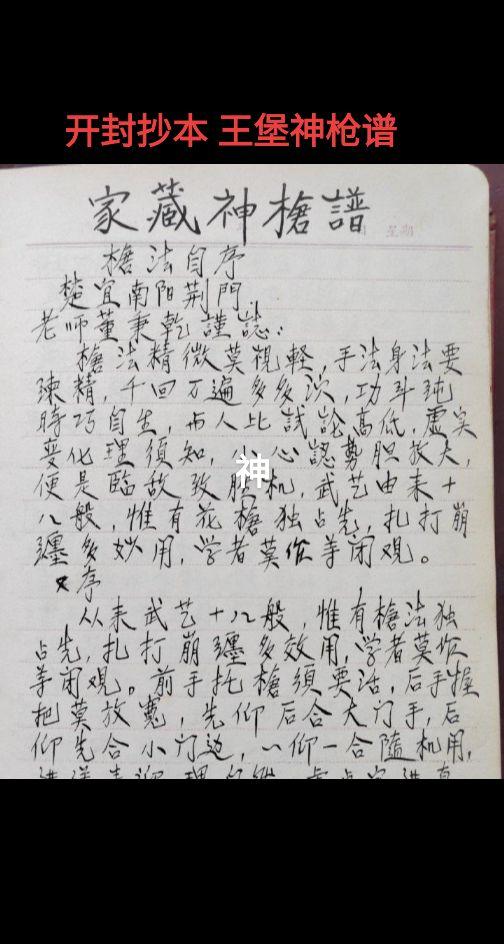 开封抄本 王堡神枪谱
星期
家藏神槍譜
槍法自序
楚宜南阳荆門
老师董秉乾謹誌：
槍法精微莫視軽，手法身法要
練精，千回万遍多多次，功斗純
時巧自生，与人比試論高低，虚实
変化理須知，小心認势胆放大，
便是臨敌致勝机，武艺由来十
八般，惟有花槍独占先，扎打崩
纏多妙用，学者莫作等闲观。
神
又序
从来武艺十八般，惟有槍法独
占先，扎打崩纏多效用，学者莫作
等闲观。前手托槍須要活，后手握
把莫放寬，先仰后合大门手，后
仰先合小门边，一仰一合隨机用，